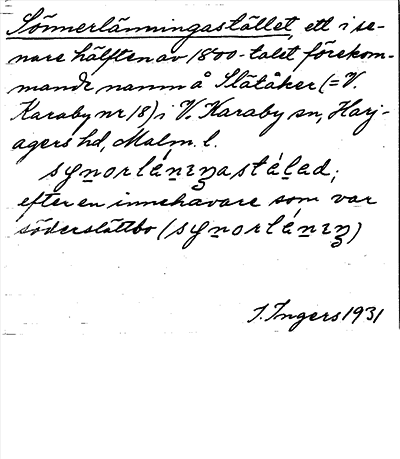 Sönnerlänningastället, ett i se-
nare hälften av 1800-talet förekom-
mande namn å Slätåker (=V.
Karaby nr 18) i V. Karaby sn, Harj-
agers hd, Malm. l.
synorlánıŋastéḷad;
efter en innehavare som var
söderslättbo (synorlánıŋ)
I. Ingers 1931